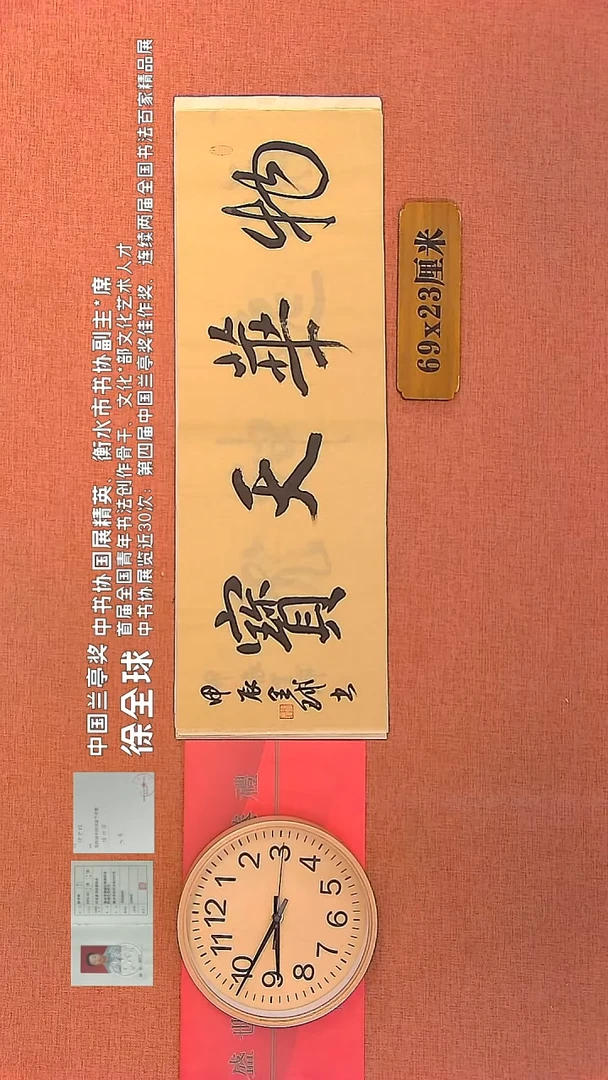 中国兰亭奖 中书协国展精英、衡水市书协副主*席
徐全球
首届全国青年书法创作骨干、文化*部文化艺术人才
中书协展览近30次:第四届中国兰亭奖佳作奖、连续两届全国书法百家精品展
物華天寶
甲辰全球书
69x23厘米
盛世
禮
12
1
2
3
4
5
6
7
8
9
10
11